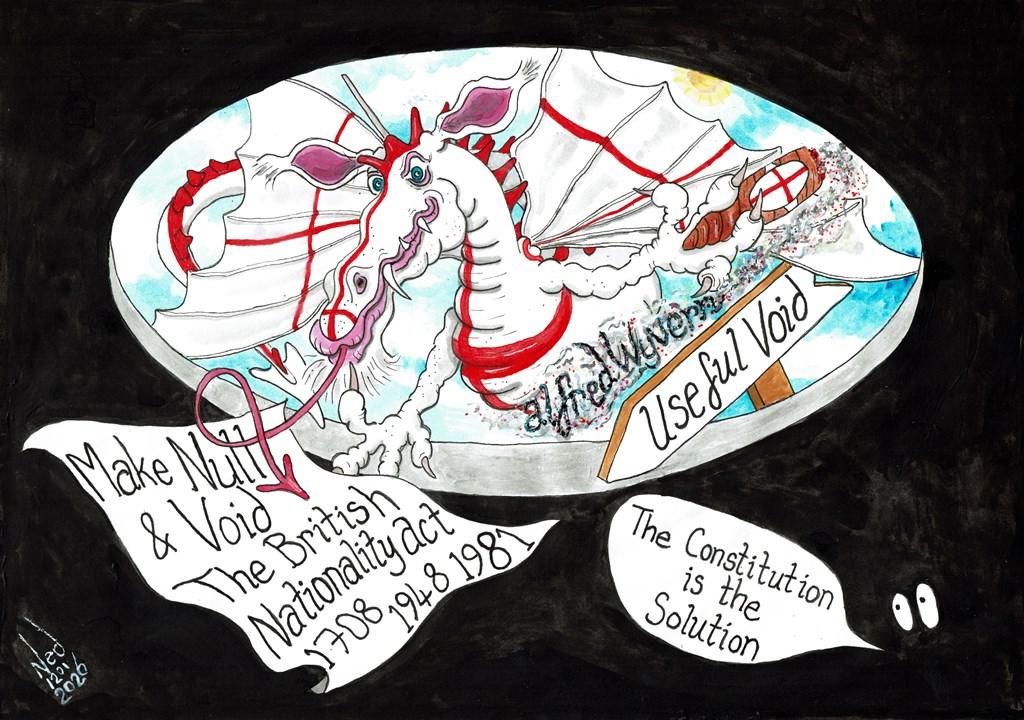 alfredWyvern
Useful Void
Make Null
& Void
The British
Nationality act
1708 1948 1981
The Constitution
is the
Solution
Ned
1221
2026